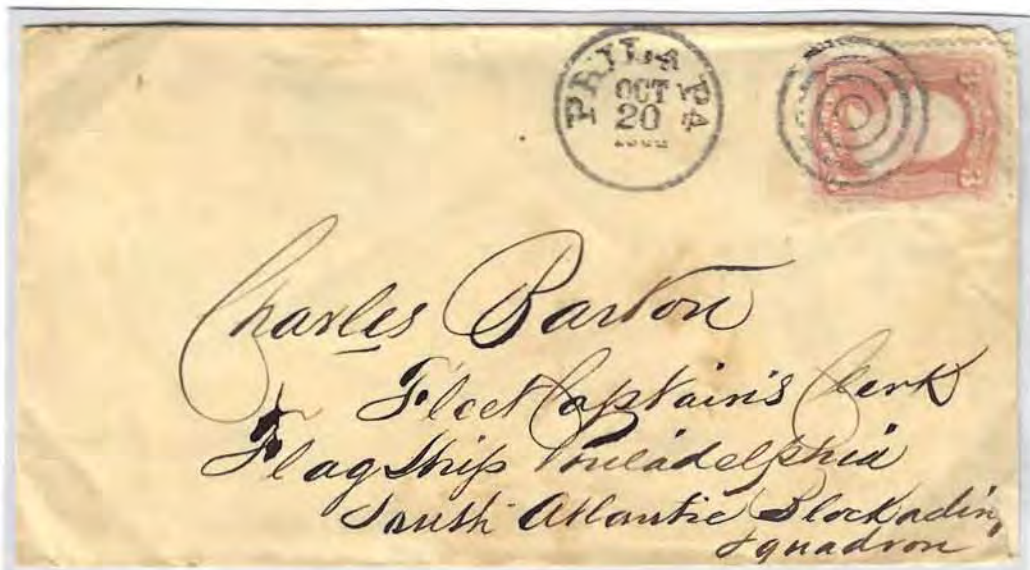 PHILA PA
OCT
20
3 3
Charles Barton
Fleet Captain's Clerk
Flag Ship Philadelphia
South Atlantic Blockading
Squadron